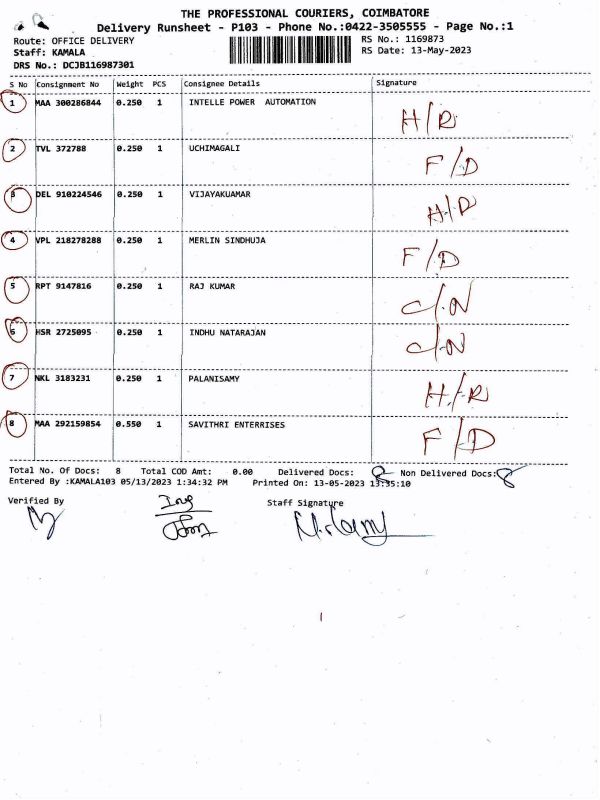 THE PROFESSIONAL COURIERS, COIMBATORE
Delivery Runsheet - P103 - Phone No.:0422-3505555 - Page No.:1
Route: OFFICE DELIVERY RS No.: 1169873
Staff: KAMALA RS Date: 13-May-2023
DRS No.: DCJB116987301
S No Consignment No Weight PCS Consignee Details Signature
1 MAA 300286844 0.250 1 INTELLE POWER AUTOMATION H/R
2 TVL 372788 0.250 1 UCHIMAGALI F/D
3 DEL 910224546 0.250 1 VIJAYAKUAMAR H/D
4 VPL 218278288 0.250 1 MERLIN SINDHUJA F/D
5 RPT 9147816 0.250 1 RAJ KUMAR C/N
6 HSR 2725095 0.250 1 INDHU NATARAJAN C/N
7 NKL 3183231 0.250 1 PALANISAMY H/R
8 MAA 292159854 0.550 1 SAVITHRI ENTERRISES F/D
Total No. Of Docs: 8 Total COD Amt: 0.00 Delivered Docs: Non Delivered Docs: 8
Entered By :KAMALA103 05/13/2023 1:34:32 PM Printed On: 13-05-2023 13:35:10
Verified By Staff Signature